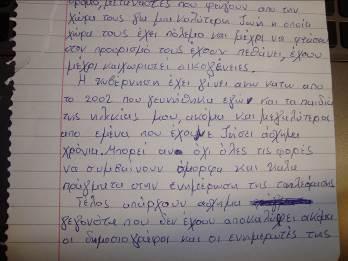 δρόμο, μετανάστες που φεύγουν απο την
χώρα τους για μια καλύτερη ζωή η οποία
χώρα τους έχει πόλεμο και μέχρι να φτάσουν
στον προορισμό τους έχουν πεθάνει, έχουν
μέχρι και χωριστεί οικογένειες.
Η κυβέρνηση έχει γίνει ανω κατω απο
το 2002 που γεννήθηκα εγώ και τα παιδιά
της ηλικίας μου, ακομα και μεγαλύτεροι
απο εμένα που έχουμε ζήσει άσχημα
χρόνια. Μπορεί αν όχι όλες τις φορές
να συμβαίνουν όμορφα και καλά
πράγματα στην ενημέρωση της τηλεόρασης
Τέλος υπάρχουν άσχημα
γεγονότα που δεν έχουν αποκαλύψει ακόμα
οι δημοσιογράφοι και οι ενημερωτές της